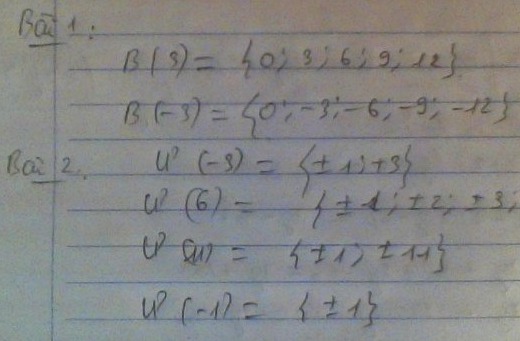 Bài 1:
B(3) = {0; 3; 6; 9; 12}
B(-3) = {0; -3; -6; -9; -12}
Bài 2: Ư(-3) = {±1; ±3}
Ư(6) = {±1; ±2; ±3;
Ư(11) = {±1; ±11}
Ư(-1) = {±1}